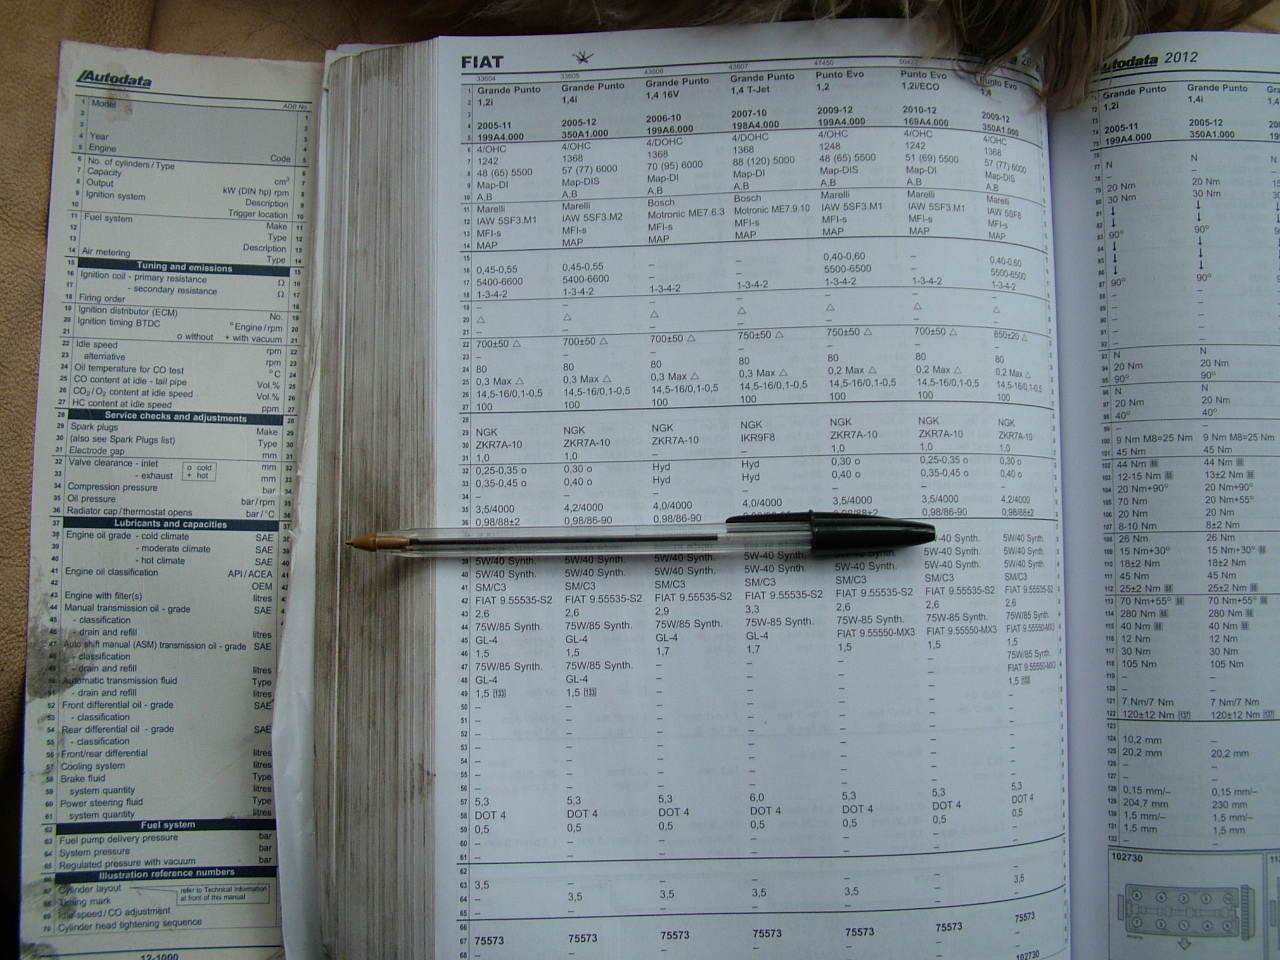 Autodata
ADB No.
1 Model 1
2 2
3 3
4 Year 4
5 Engine Code 5
6 No. of cylinders/Type 6
7 Capacity cm³ 7
8 Output kW (DIN hp) rpm 8
9 Ignition system Description 9
10 Trigger location 10
11 Fuel system Make 11
12 Type 12
13 Description 13
14 Air metering Type 14
15 Tuning and emissions 15
16 Ignition coil - primary resistance Ω 16
17 - secondary resistance Ω 17
18 Firing order 18
19 Ignition distributor (ECM) No. 19
20 Ignition timing BTDC °Engine/rpm 20
21 o without + with vacuum 21
22 Idle speed rpm 22
23 alternative rpm 23
24 Oil temperature for CO test °C 24
25 CO content at idle - tail pipe Vol.% 25
26 CO₂/O₂ content at idle speed Vol.% 26
27 HC content at idle speed ppm 27
28 Service checks and adjustments 28
29 Spark plugs Make 29
30 (also see Spark Plugs list) Type 30
31 Electrode gap mm 31
32 Valve clearance - inlet o cold mm 32
33 - exhaust + hot mm 33
34 Compression pressure bar 34
35 Oil pressure bar/rpm 35
36 Radiator cap/thermostat opens bar/°C 36
37 Lubricants and capacities 37
38 Engine oil grade - cold climate SAE 38
39 - moderate climate SAE 39
40 - hot climate SAE 40
41 Engine oil classification API/ACEA 41
42 OEM 42
43 Engine with filter(s) litres 43
44 Manual transmission oil - grade SAE 44
45 - classification
46 - drain and refill litres
47 Auto shift manual (ASM) transmission oil - grade SAE
48 - classification
49 - drain and refill litres
50 Automatic transmission fluid Type
51 - drain and refill litres
52 Front differential oil - grade SAE
53 - classification
54 Rear differential oil - grade SAE
55 - classification
56 Front/rear differential litres
57 Cooling system litres
58 Brake fluid Type
59 system quantity litres
60 Power steering fluid Type
61 system quantity litres
62 Fuel system
63 Fuel pump delivery pressure bar
64 System pressure bar
65 Regulated pressure with vacuum bar
66 Illustration reference numbers
67 Cylinder layout refer to Technical Information
68 Timing mark at front of this manual
69 Idle speed/CO adjustment
70 Cylinder head tightening sequence
12-1000
FIAT
33604 33605 43606 43607 47450
1 Grande Punto Grande Punto Grande Punto Grande Punto Punto Evo Punto Evo Punto Evo
2 1,2i 1,4i 1,4 16V 1,4 T-Jet 1,2 1,2i/ECO 1,4
4 2005-11 2005-12 2006-10 2007-10 2009-12 2010-12 2009-12
5 199A4.000 350A1.000 199A6.000 198A4.000 199A4.000 169A4.000 350A1.000
6 4/OHC 4/OHC 4/DOHC 4/DOHC 4/OHC 4/OHC 4/OHC
7 1242 1368 1368 1368 1248 1242 1368
8 48 (65) 5500 57 (77) 6000 70 (95) 6000 88 (120) 5000 48 (65) 5500 51 (69) 5500 57 (77) 6000
9 Map-DI Map-DIS Map-DI Map-DI Map-DI Map-DI Map-DIS
10 A,B A,B A,B A,B A,B A,B A,B
11 Marelli Marelli Bosch Bosch Marelli Marelli Marelli
12 IAW 5SF3.M1 IAW 5SF3.M2 Motronic ME7.6.3 Motronic ME7.9.10 IAW 5SF3.M1 IAW 5SF3.M1 IAW 5SF8
13 MFI-s MFI-s MFI-s MFI-s MFI-s MFI-s MFI-s
14 MAP MAP MAP MAP MAP MAP MAP
15
16 0,45-0,55 0,45-0,55 – – 0,40-0,60 – 0,40-0,60
17 5400-6600 5400-6600 – – 5500-6500 – 5500-6500
18 1-3-4-2 1-3-4-2 1-3-4-2 1-3-4-2 1-3-4-2 1-3-4-2 1-3-4-2
19 – – – – – – –
20 △ △ △ △ △ △ △
21 – – – – – – –
22 700±50 △ 700±50 △ 700±50 △ 750±50 △ 750±50 △ 700±50 △ 850±20 △
23 – – – – – – –
24 80 80 80 80 80 80 80
25 0,3 Max △ 0,3 Max △ 0,3 Max △ 0,3 Max △ 0,2 Max △ 0,2 Max △ 0,2 Max △
26 14,5-16/0,1-0,5 14,5-16/0,1-0,5 14,5-16/0,1-0,5 14,5-16/0,1-0,5 14,5-16/0,1-0,5 14,5-16/0,1-0,5 14,5-16/0,1-0,5
27 100 100 100 100 100 100 100
28
29 NGK NGK NGK NGK NGK NGK NGK
30 ZKR7A-10 ZKR7A-10 ZKR7A-10 IKR9F8 ZKR7A-10 ZKR7A-10 ZKR7A-10
31 1,0 1,0 – – 1,0 1,0 1,0
32 0,25-0,35 o 0,30 o Hyd Hyd 0,30 o 0,25-0,35 o 0,30 o
33 0,35-0,45 o 0,40 o Hyd Hyd 0,40 o 0,35-0,45 o 0,40 o
34 – – – – – – –
35 3,5/4000 4,2/4000 4,0/4000 4,0/4000 3,5/4000 3,5/4000 4,2/4000
36 0,98/88±2 0,98/86-90 0,98/86-90 0,98/88±2 0,98/86-90 0,98/88±2
5W-40 Synth. 5W/40 Synth.
39 5W/40 Synth. 5W/40 Synth. 5W/40 Synth. 5W/40 Synth. 5W-40 Synth. 5W-40 Synth. 5W/40 Synth.
40 5W/40 Synth. 5W/40 Synth. 5W/40 Synth. 5W/40 Synth. 5W-40 Synth. 5W-40 Synth. 5W/40 Synth.
41 SM/C3 SM/C3 SM/C3 SM/C3 SM/C3 SM/C3 SM/C3
42 FIAT 9.55535-S2 FIAT 9.55535-S2 FIAT 9.55535-S2 FIAT 9.55535-S2 FIAT 9.55535-S2 FIAT 9.55535-S2 FIAT 9.55535-S2
43 2,6 2,6 2,9 3,3 2,6 2,6 2,6
44 75W/85 Synth. 75W/85 Synth. 75W/85 Synth. 75W-85 Synth. 75W-85 Synth. 75W-85 Synth. 75W/85 Synth.
45 GL-4 GL-4 GL-4 GL-4 FIAT 9.55550-MX3 FIAT 9.55550-MX3 FIAT 9.55550-MX3
46 1,5 1,5 1,7 1,7 1,5 1,5 1,5
47 75W/85 Synth. 75W/85 Synth. – – – – 75W/85 Synth.
48 GL-4 GL-4 – – – – FIAT 9.55550-MX3
49 1,5 [133] 1,5 [133] – – – – 1,5
50 – – – – – – –
51 – – – – – – –
52 – – – – – – –
53 – – – – – – –
54 – – – – – – –
55 – – – – – – –
56 – – – – – – –
57 5,3 5,3 5,3 6,0 5,3 5,3 5,3
58 DOT 4 DOT 4 DOT 4 DOT 4 DOT 4 DOT 4 DOT 4
59 0,5 0,5 0,5 0,5 0,5 0,5 0,5
60 – – – – – – –
61 – – – – – – –
62
63 3,5 – – – – – 3,5
64 – 3,5 3,5 3,5 3,5 – –
65 – – – – – – –
66
67 75573 75573 75573 75573 75573 75573 75573
68 – – – – – – –
102730
Autodata 2012
71 Grande Punto Grande Punto
72 1,2i 1,4i
74 2005-11 2005-12
75 199A4.000 350A1.000
N N
20 Nm 20 Nm
30 Nm 30 Nm
↓ ↓
90° 90°
↓ ↓
90° 90°
N N
20 Nm 20 Nm
90° 90°
N N
20 Nm 20 Nm
40° 40°
100 9 Nm M8=25 Nm 9 Nm M8=25 Nm
101 45 Nm 45 Nm
102 44 Nm 44 Nm
103 12-15 Nm 13±2 Nm
104 20 Nm+90° 20 Nm+90°
105 70 Nm 20 Nm+55°
106 20 Nm 20 Nm
107 8-10 Nm 8±2 Nm
108 26 Nm 26 Nm
109 15 Nm+30° 15 Nm+30°
110 18±2 Nm 18±2 Nm
111 45 Nm 45 Nm
112 25±2 Nm 25±2 Nm
113 70 Nm+55° 70 Nm+55°
114 280 Nm 280 Nm
115 40 Nm 40 Nm
116 12 Nm 12 Nm
117 30 Nm 30 Nm
118 105 Nm 105 Nm
119 – –
120 – –
121 7 Nm/7 Nm 7 Nm/7 Nm
122 120±12 Nm [137] 120±12 Nm [137]
123
124 10,2 mm –
125 20,2 mm 20,2 mm
126 – –
127 – –
128 0,15 mm/– 0,15 mm/–
129 204,7 mm 230 mm
130 1,5 mm/– 1,5 mm/–
131 1,5 mm 1,5 mm
132 – –
102730